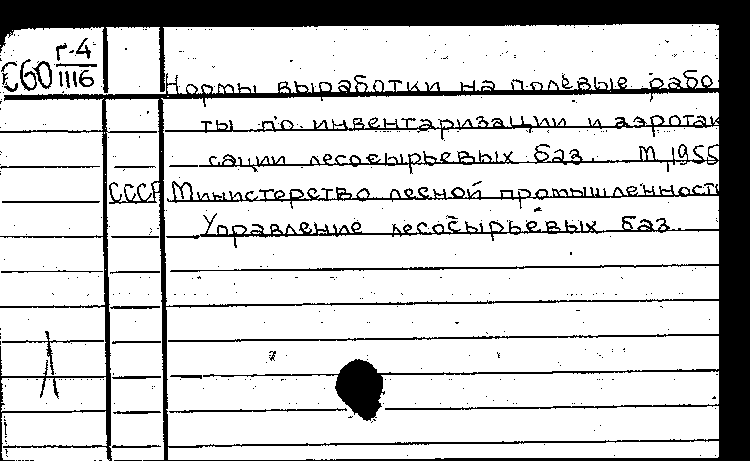 С60 Г-4
1116
Нормы выработки на полевые рабо
ты по инвентаризации и аэротак
сации лесосырьевых баз. М, 1955
СССР Министерство лесной промышленности
Управление лесосырьевых баз.
Л